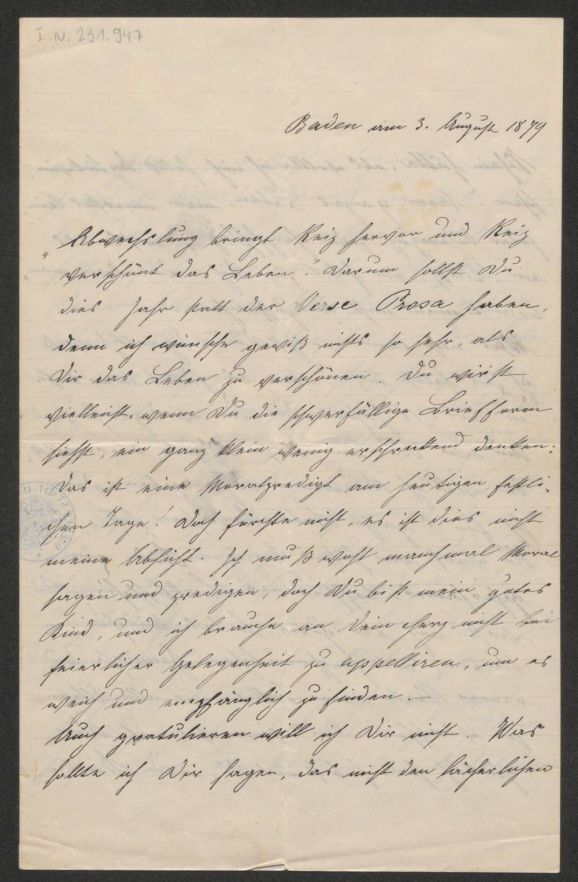 I.N. 231.947
Baden am 3. August 1879
„Abwechslung bringt Reiz hervor und Reiz
verschönt das Leben". Darum sollst Du
dies Jahr statt der Verse Prosa haben,
denn ich wünsche gewiß nichts so sehr, als
Dir das Leben zu verschönen. Du wirst
vielleicht, wenn Du die schwerfällige Briefform
siehst, ein ganz klein wenig erschreckend denken:
das ist eine Moralpredigt am heutigen festli-
chen Tage! Doch fürchte nicht, es ist dies nicht
meine Absicht. Ich muß wohl manchmal Moral
sagen und predigen, doch Du bist mein gutes
Kind, und ich brauche an Dein Herz nicht bei
feierlicher Gelegenheit zu appelliren, um es
weich und empfänglich zu finden. —
Auch gratulieren will ich Dir nicht. Was
sollte ich Dir sagen, das nicht den lächerlichen